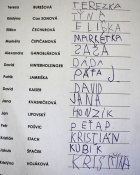 Tereza BUREŠOVÁ TEREZKA
Kristýna Con SONOVÁ TÝNA
Miška ČECHUROVÁ ELIŠKA
Markéta ČIPČANOVÁ MARKÉTKA
Alexandra GANGELÁŠOVÁ ZÁŠA
David HINTERHOLZINGER DÁDA
Patrik JAMRIŠKA PÁŤA J
David KAISER DAVID
Jana KVASNIČKOVÁ JANA
Jan LIPOVSKÝ HONZÍK
Petr POŠVIC PETAP
Kristián STACH KRISTIÁN
Jakub ŠPAČEK KUBÍK
Kristýna VOLÁKOVÁ KRISTÝNA